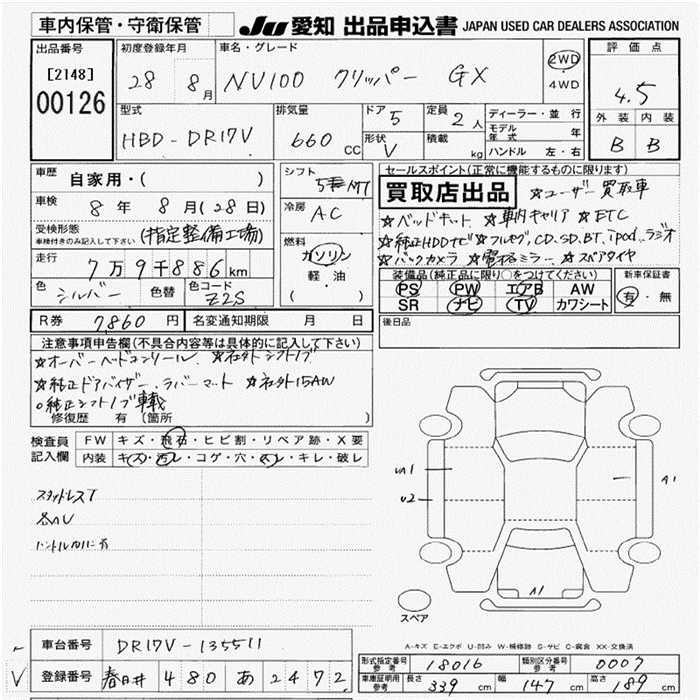 車内保管・守衛保管
JU 愛知 出品申込書 JAPAN USED CAR DEALERS ASSOCIATION
出品番号
[2148]
00126
初度登録年月
28 8月
車名・グレード
NV100 クリッパー GX
2WD
4WD
評価点
4.5
外装 内装
B B
型式
HBD-DR17V
排気量
660 CC
ドア 5
形状 V
定員 2人
積載 kg
ディーラー・並行
モデル年式
ハンドル 左・右
車歴 自家用・( )
車検 8年 8月(28日)
受検形態
車検付きのみ記入して下さい (指定整備工場)
走行 7万9千886km
色 シルバー 色替 色コード Z2S
シフト 5 MT
冷房 AC
燃料
ガソリン
軽・油
( )
セールスポイント(正常に機能するものに限ります)
買取店出品 ☆ユーザー買取車
☆ベッドキット ☆車内キャリア ☆ETC
☆純正HDDナビ ☆フルセグ,CD,SD,BT,ipod,ラジオ
☆バックカメラ ☆電格ミラー ☆スペアタイヤ
装備品(純正品に限り○をつけてください)
PS PW エアB AW
SR ナビ TV カワシート
新車保証書
有・無
R券 7860円 名変通知期限 月 日
後日品
注意事項申告欄(不具合内容等は具体的に記入して下さい)
☆オーバーヘッドコンソール ☆社外シフトノブ
☆純正ドアバイザー、ラバーマット ☆社外15AW
○純正シフトノブ車載
修復歴 有(箇所 )
検査員記入欄
FW キズ・飛石・ヒビ割・リペア跡・X要
内装 キズ・汚レ・コゲ・穴・スレ・キレ・破レ
スタッドレスT
各小U
UA1
U2
A1
A1
スペア
A-キズ E-エクボ U-凹み W-補修跡 S-サビ C-腐食 XX-交換済
車台番号 DR17V-135511
登録番号 春日井 480 あ 2472
V
形式指定番号 参考 18016 類別区分番号 参考 0007
車庫証明用 参考 長さ 339 cm 幅 147 cm 高さ 189 cm